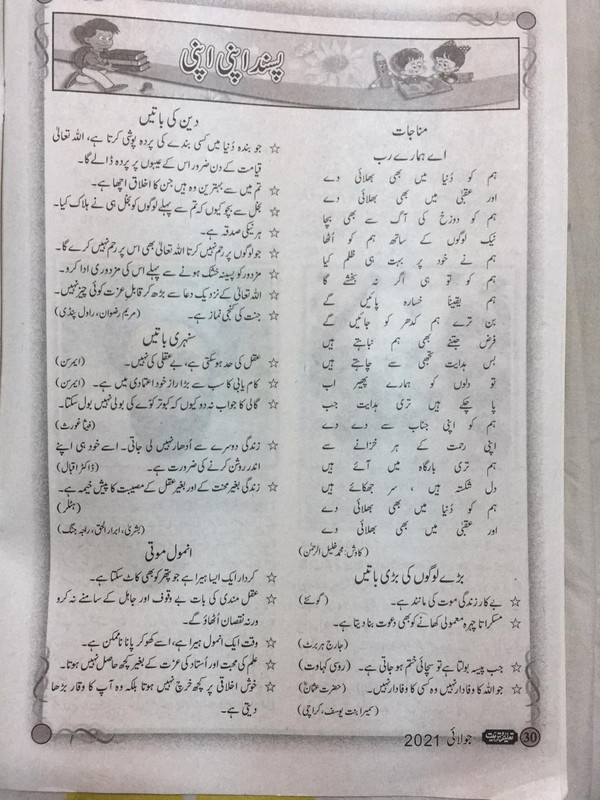 پسند اپنی اپنی
مناجات
اے ہمارے رب
ہم کو دُنیا میں بھی بھلائی دے
اور عقبیٰ میں بھی بھلائی دے
ہم کو دوزخ کی آگ سے بھی بچا
نیک لوگوں کے ساتھ ہم کو اُٹھا
ہم نے خود پر بہت ہی ظلم کیا
ہم کو تو ہی اگر نہ بخشے گا
ہم یقیناً خسارہ پائیں گے
بن ترے ہم کدھر کو جائیں گے
فرض جتنے بھی ہم نباہتے ہیں
بس ہدایت تجھی سے چاہتے ہیں
تو دلوں کو ہمارے پھیر اب
پا چکے ہیں تری ہدایت جب
ہم کو اپنی جناب سے دے دے
اپنی رحمت کے ہر خزانے سے
ہم تری بارگاہ میں آئے ہیں
دل شکستہ ہیں ، سر جھکائے ہیں
ہم کو دُنیا میں بھی بھلائی دے
اور عقبیٰ میں بھی بھلائی دے
(کاوش: محمد خلیل الرحمٰن)
بڑے لوگوں کی بڑی باتیں
☆ بے کار زندگی موت کی مانند ہے۔ (گوئٹے)
☆ مسکراتا چہرہ معمولی کھانے کو بھی دعوت بنا دیتا ہے۔
(جارج ہربرٹ)
☆ جب پیسہ بولتا ہے تو سچائی ختم ہو جاتی ہے۔ (روسی کہاوت)
☆ جو اللہ کا وفادار نہیں وہ کسی کا وفادار نہیں۔ (حضرت عثمانؓ)
(سمیرا بنت یوسف، کراچی)
دین کی باتیں
☆ جو بندہ دُنیا میں کسی بندے کی پردہ پوشی کرتا ہے، اللہ تعالیٰ
قیامت کے دن ضرور اس کے عیبوں پر پردہ ڈالے گا۔
☆ تم میں سے بہترین وہ ہیں جن کا اخلاق اچھا ہے۔
☆ بخل سے بچو کیوں کہ تم سے پہلے لوگوں کو بخل ہی نے ہلاک کیا۔
☆ ہر نیکی صدقہ ہے۔
☆ جو لوگوں پر رحم نہیں کرتا اللہ تعالیٰ بھی اس پر رحم نہیں کرے گا۔
☆ مزدور کو پسینہ خشک ہونے سے پہلے اس کی مزدوری ادا کرو۔
☆ اللہ تعالیٰ کے نزدیک دعا سے بڑھ کر قابلِ عزت کوئی چیز نہیں۔
☆ جنت کی کنجی نماز ہے۔ (مریم رضوان، راول پنڈی)
سنہری باتیں
☆ عقل کی حد ہو سکتی ہے، بے عقلی کی نہیں۔ (ایمرسن)
☆ کام یابی کا سب سے بڑا راز خود اعتمادی میں ہے۔ (ایمرسن)
☆ گالی کا جواب نہ دو کیوں کہ کبوتر کوّے کی بولی نہیں بول سکتا۔
(فیثا غورث)
☆ زندگی دوسرے سے اُدھار نہیں لی جاتی۔ اسے خود ہی اپنے
اندر روشن کرنے کی ضرورت ہے۔ (ڈاکٹر اقبال)
☆ زندگی بغیر محنت کے اور بغیر عقل کے مصیبت کا پیش خیمہ ہے۔
(ہٹلر)
(بشریٰ، ابرار الحق، راجہ جنگ)
انمول موتی
☆ کردار ایک ایسا ہیرا ہے جو پتھر کو بھی کاٹ سکتا ہے۔
☆ عقل مندی کی بات بے وقوف اور جاہل کے سامنے نہ کرو
ورنہ نقصان اُٹھاؤ گے۔
☆ وقت ایک انمول ہیرا ہے، اسے کھو کر پانا ناممکن ہے۔
☆ علم کی محبت اور اُستاد کی عزت کے بغیر کچھ حاصل نہیں ہوتا۔
☆ خوش اخلاقی پر کچھ خرچ نہیں ہوتا بلکہ وہ آپ کا وقار بڑھا
دیتی ہے۔
30 تعلیم و تربیت جولائی 2021